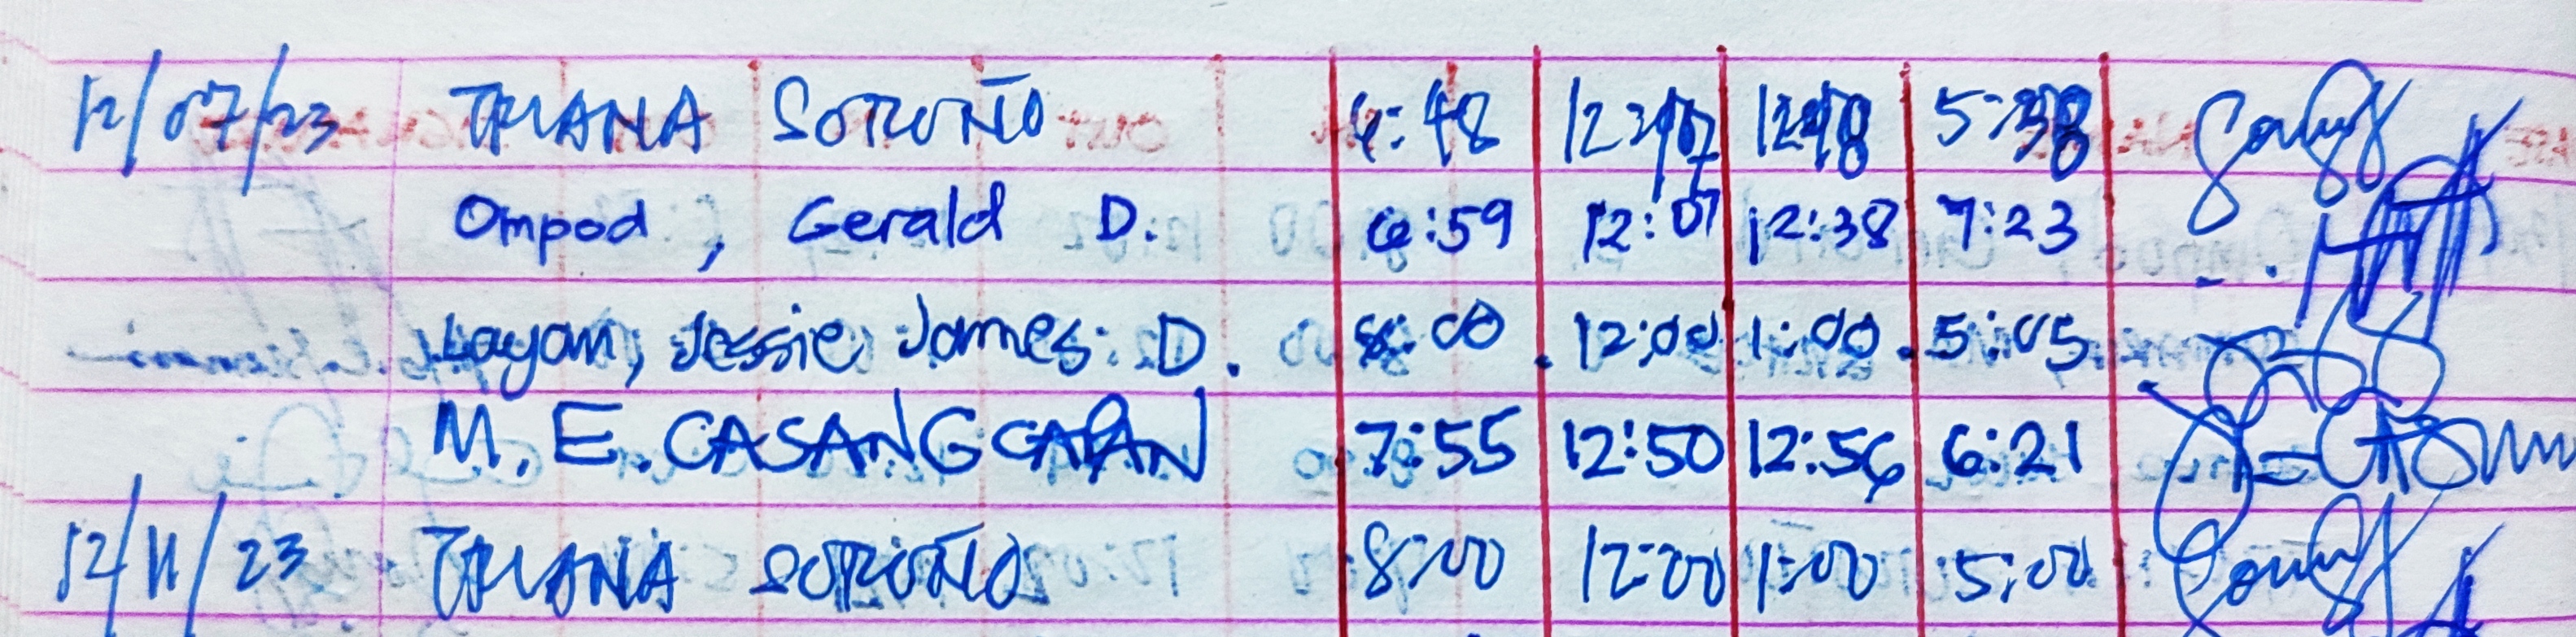 12/07/23 TRIANA SOROÑO 6:48 12:07 12:48 5:38
Ompod, Gerald D. 6:59 12:07 12:38 7:23
Layan, Jessie James D. 8:00 12:00 1:00 5:05
M. E. CASANGCAPAN 7:55 12:50 12:56 6:21
12/11/23 TRIANA SOROÑO 8:00 12:00 1:00 5:00